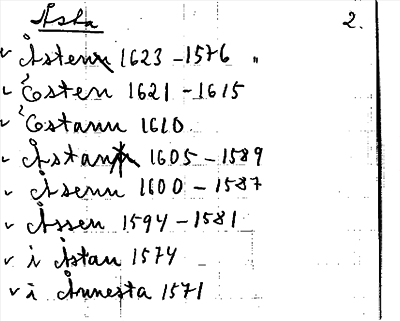 Åsta 2.
v Åstenn 1623 – 1576 "
v Östen 1621 – 1615
v Östann 1610.
v Åstann 1605 – 1589
v Åsenn 1600 – 1587
v Åssen 1594 – 1581
v i Åstan 1574
v i Ånnesta 1571